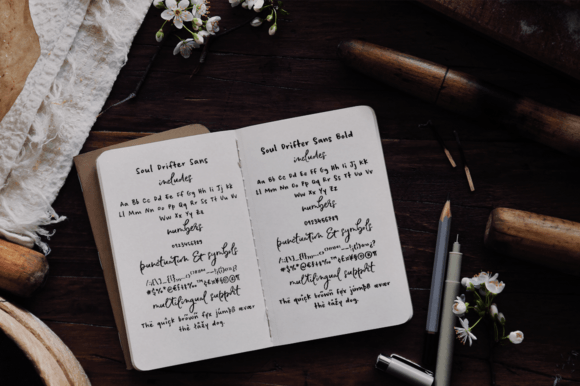 Soul Drifter Sans
includes
Aa Bb Cc Dd Ee Ff Gg Hh Ii Jj Kk
Ll Mm Nn Oo Pp Qq Rr Ss Tt Uu Vv
Ww Xx Yy Zz
numbers
0123456789
punctuation & symbols
multilingual support
Soul Drifter Sans Bold
includes
Aa Bb Cc Dd Ee Ff Gg Hh Ii Jj Kk
Ll Mm Nn Oo Pp Qq Rr Ss Tt Uu Vv
Ww Xx Yy Zz
numbers
0123456789
punctuation & symbols
multilingual support